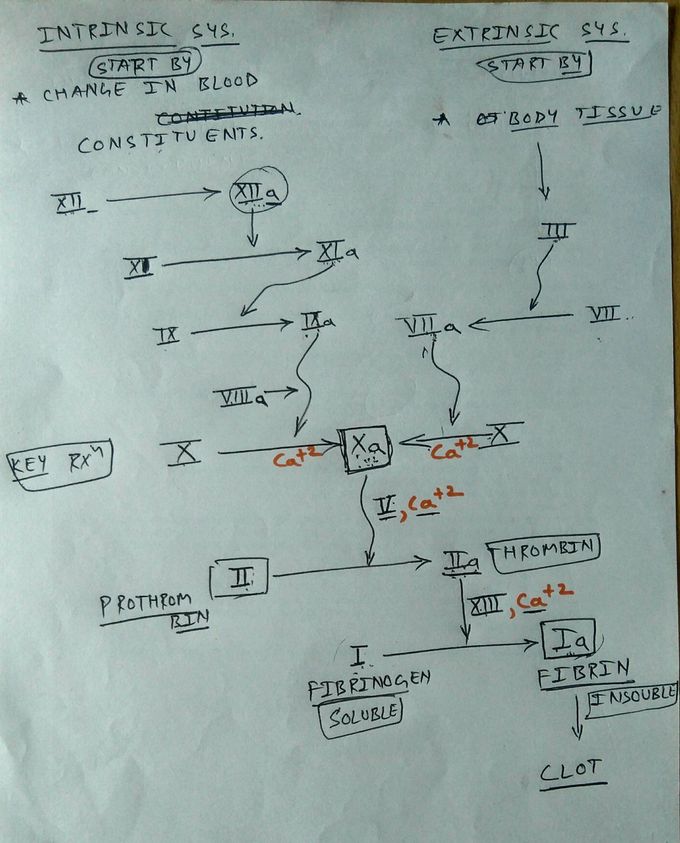 INTRINSIC SYS.
START BY
* CHANGE IN BLOOD
CONSTITUENTS.
EXTRINSIC SYS.
START BY
* BODY TISSUE
XII
XIIa
III
XI
XIa
IX
IXa
VIIa
VII
VIIIa
KEY RXⁿ
X
Ca+2
Xa
Ca+2
X
V, Ca+2
PROTHROM
BIN
II
IIa
THROMBIN
XIII, Ca+2
I
Ia
FIBRINOGEN
SOLUBLE
FIBRIN
INSOUBLE
CLOT